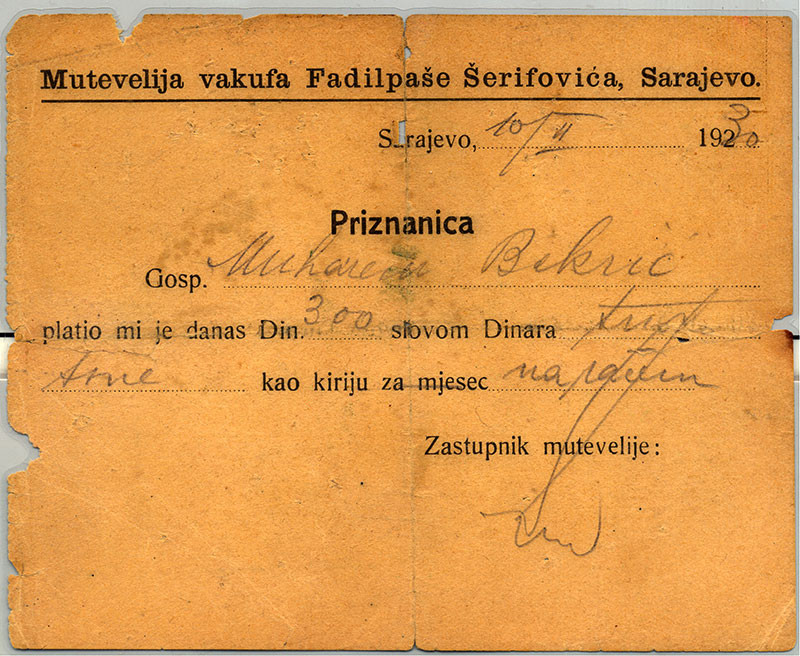 Mutevelija vakufa Fadilpaše Šerifovića, Sarajevo.
Sarajevo, 10/II 1930
Priznanica
Gosp. Muharem Bekrić
platio mi je danas Din. 300 slovom Dinara
kao kiriju za mjesec
Zastupnik mutevelije: